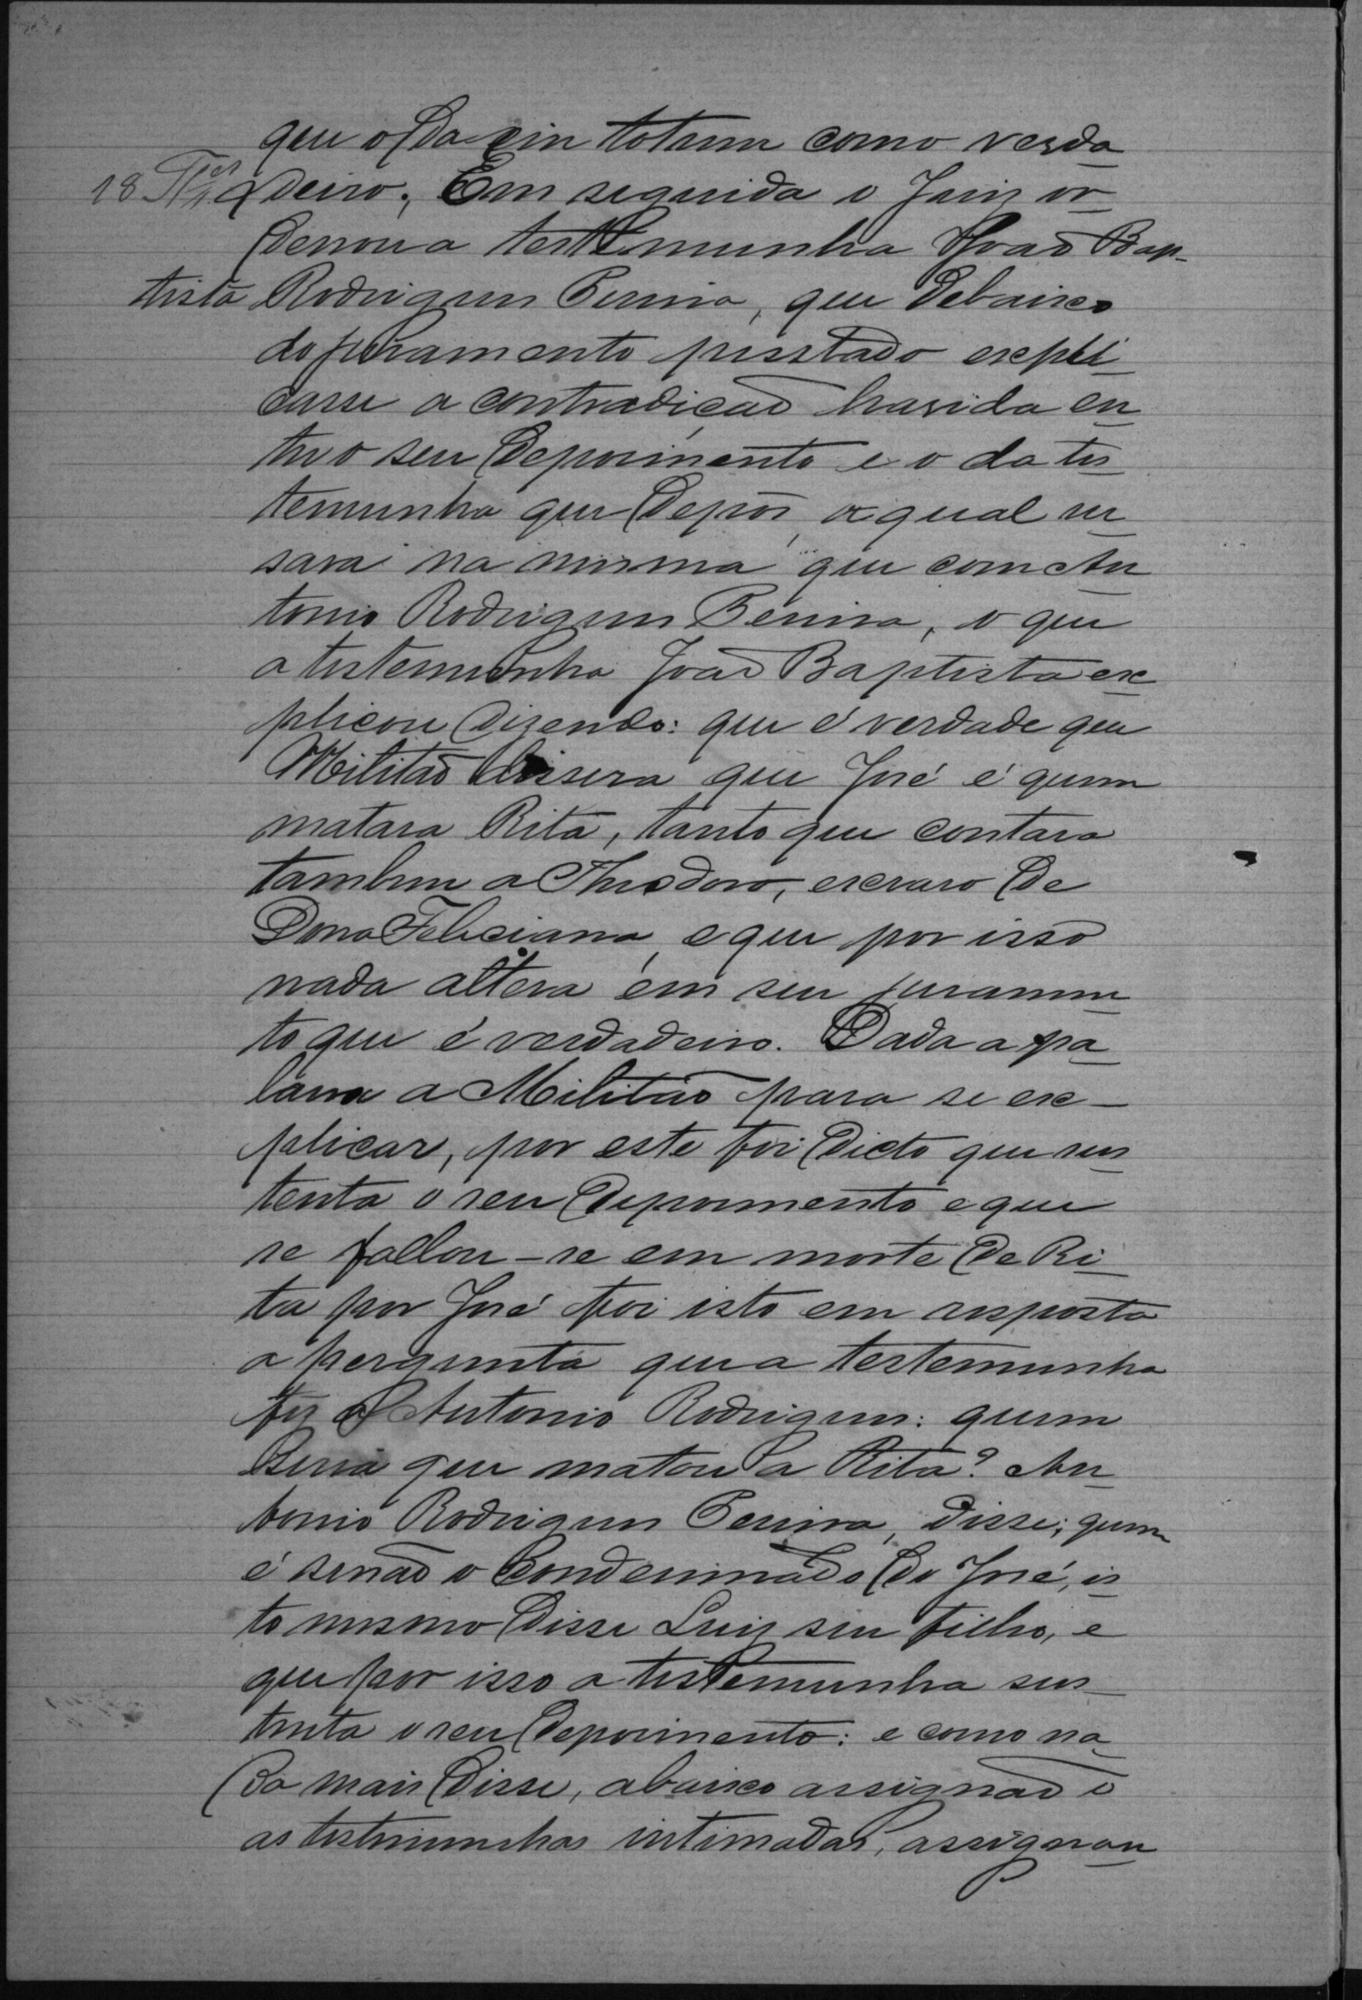 que o dá em totum como verda
18 deiro. Em seguida o Juiz or
denou a testemunha João Bap-
tista Rodrigues Pereira, que debaixo
do juramento prestado expli
casse a contradicção havida en
tre o seu depoimento e o da tes
temunha que depôs, a qual
na mesma que com An
tonio Rodrigues Pereira, o que
a testemunha João Baptista ex
plicou dizendo: que é verdade que
Militão dissera que José é quem
matara Rita, tanto que contara
tambem a Theodoro, escravo de
Dona Feliciana, e que por isso
nada altera em seu juramen
to que é verdadeiro. Dada a pa
lavra a Militão para se ex-
plicar, por este foi dicto que sus
tenta o seu depoimento e que
se fallou-se em morte de Ri
ta por José foi isto em resposta
a pergunta que a testemunha
fez a Antonio Rodrigues: quem
seria que matou a Rita? An
tonio Rodrigues Pereira, disse; quem
é senão o condemnado do José, is
to mesmo disse Luiz seu filho, e
que por isso a testemunha sus
tenta o seu depoimento: e como na
da mais disse, abaixo assignão e
as testemunhas intimadas, assignan